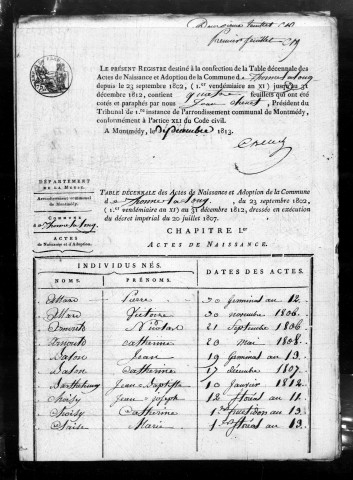 Premier feuillet
LE PRÉSENT REGISTRE destiné à la confection de la Table décennale des
Actes de Naissance et Adoption de la Commune de Thonne la long
depuis le 23 septembre 1802, (1.er vendémiaire an XI) jusqu'au 31
décembre 1812, contient quatre feuillets qui ont été
cotés et paraphés par nous Président du
Tribunal de 1.re instance de l'arrondissement communal de Montmédy,
conformément à l'article XLI du Code civil.
A Montmédy, le décembre 1813.
DÉPARTEMENT
DE LA MEUSE.
Arrondissement communal
de Montmédy.
COMMUNE
de Thonne la long.
ACTES
de Naissance et d'Adoption.
TABLE DÉCENNALE des Actes de Naissance et Adoption de la Commune
de Thonne la Long, du 23 septembre 1802,
(1.er vendémiaire an XI) au 31 décembre 1812, dressée en exécution
du décret impérial du 20 juillet 1807.
CHAPITRE I.er
ACTES DE NAISSANCE.
INDIVIDUS NÉS.
NOMS. PRÉNOMS. DATES DES ACTES.
Pierre 20 germinal an 12.
Victoire 30 novembre 1806.
Nicolas 21 septembre 1806
Catherine 20 mai 1808.
Jean 19 germinal an 13.
Catherine 17 décembre 1807.
Barthelemy Jean Baptiste 10 janvier 1812
Choisy Jean Joseph 12 floréal an 11.
Choisy Catherine 1.er fructidor an 13.
Marie 1.er floréal an 13.